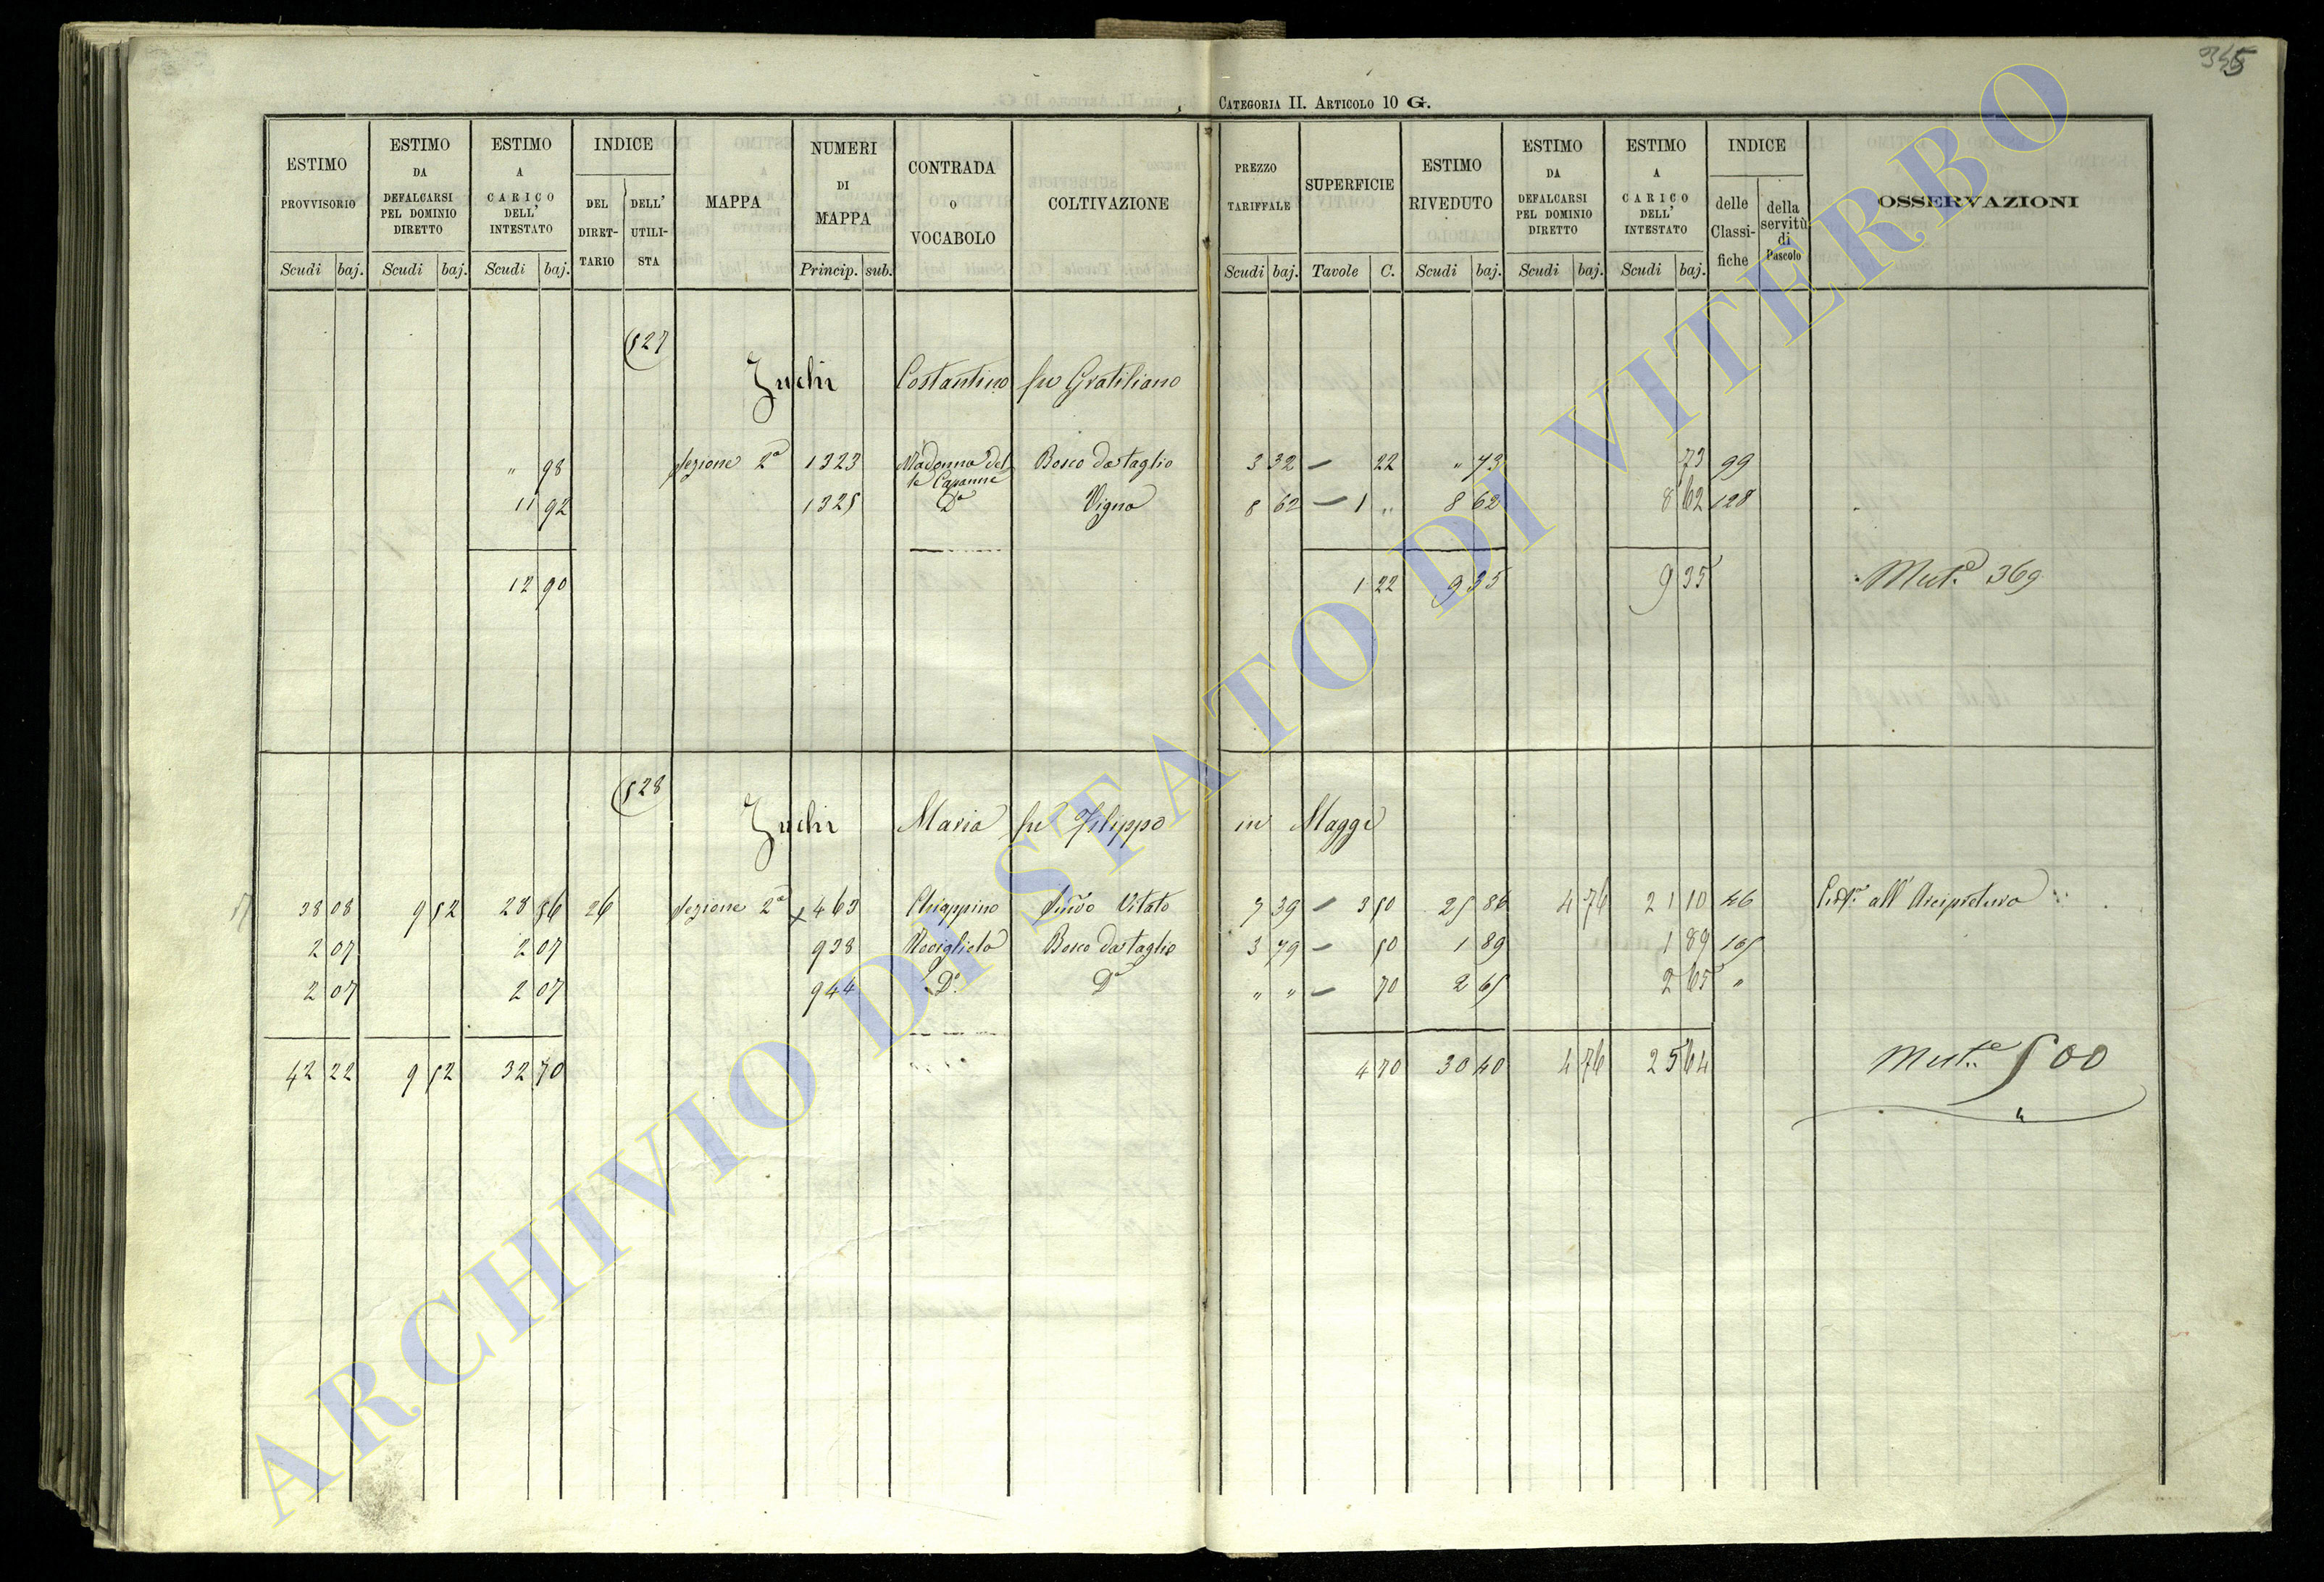 345
CATEGORIA II. ARTICOLO 10 G.
ESTIMO PROVVISORIO
ESTIMO DA DEFALCARSI PEL DOMINIO DIRETTO
ESTIMO A CARICO DELL' INTESTATO
INDICE
DEL DIRET-TARIO
DELL' UTILI-STA
MAPPA
NUMERI DI MAPPA
CONTRADA O VOCABOLO
COLTIVAZIONE
PREZZO TARIFFALE
SUPERFICIE
ESTIMO RIVEDUTO
ESTIMO DA DEFALCARSI PEL DOMINIO DIRETTO
ESTIMO A CARICO DELL' INTESTATO
INDICE
delle Classi-fiche
della servitù di Pascolo
OSSERVAZIONI
Scudi baj. Scudi baj. Scudi baj. Princip. sub. Scudi baj. Tavole C. Scudi baj. Scudi baj. Scudi baj.
527
Zuchi Costantino fu Gratiliano
" 98 Sezione 2a 1323 Madonna del le Capanne Bosco da taglio 3 32 — 22 " 73 73 99
11 92 1325 Da Vigna 8 62 — 1 " 8 62 8 62 128
12 90 1 22 9 35 9 35 Muta. 369
528
Zuchi Maria fu Filippo in Maggi
38 08 9 52 28 56 26 Sezione 2a x 463 Chiappino Sem.vo Vitato 7 39 — 3 50 25 86 4 76 21 10 46 all' Arcipretura
2 07 2 07 938 Roviglieta Bosco da taglio 3 79 — 50 1 89 1 89 105
2 07 2 07 944 Da. Da " " — 70 2 65 2 65 "
42 22 9 52 32 70 4 70 30 40 4 76 25 64 Muta. 500
ARCHIVIO DI STATO DI VITERBO